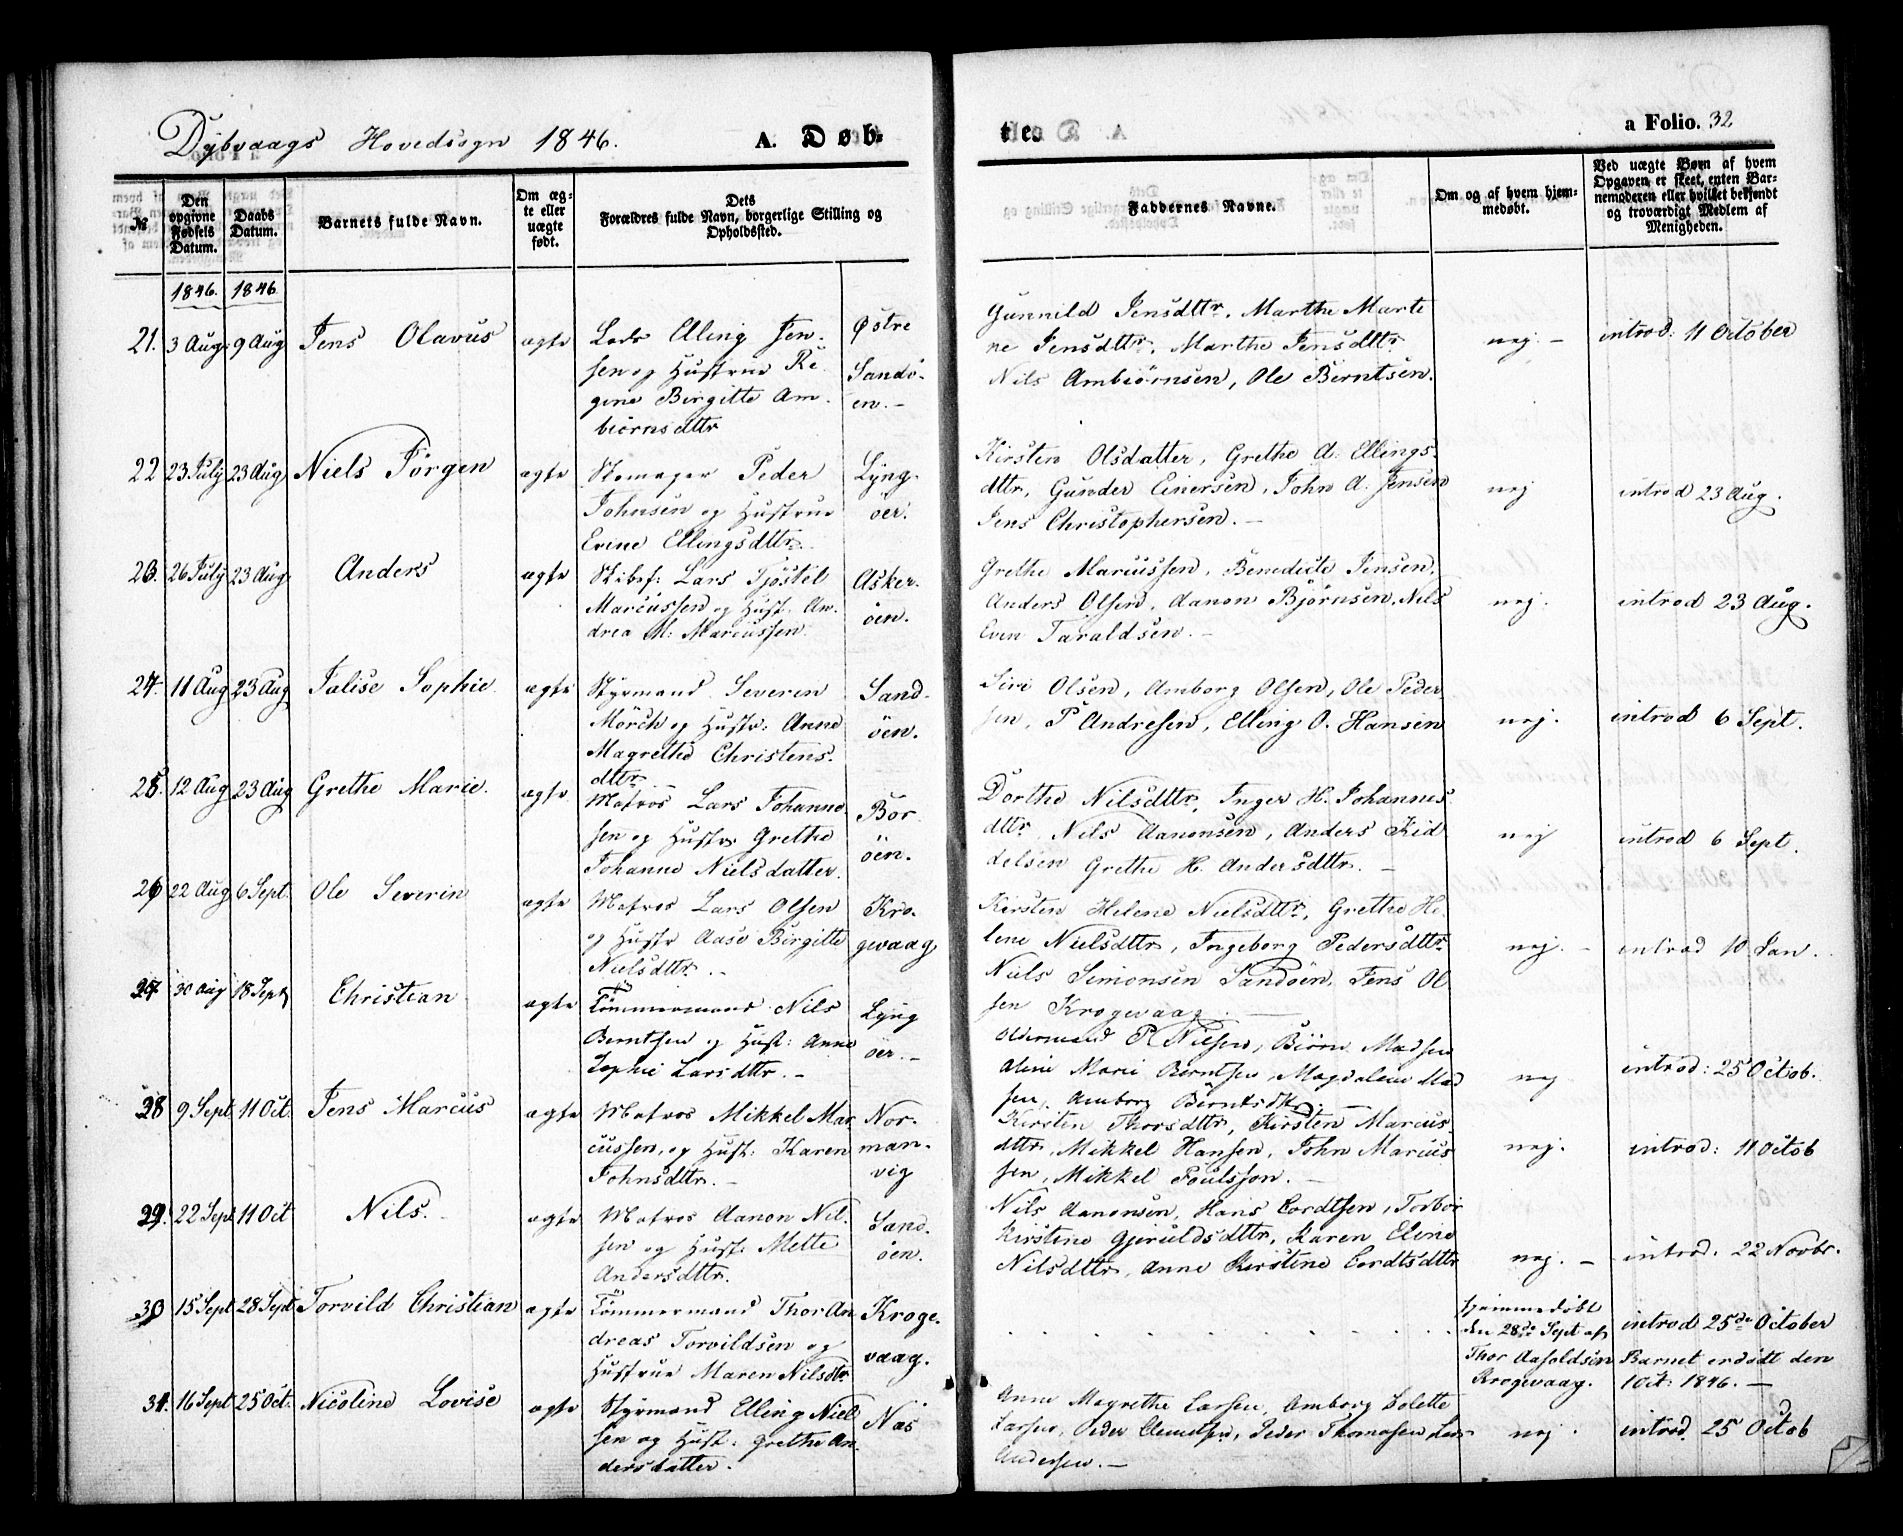 Dybvaags Hovedsogn 1846.
A. Døb-
te.
a Folio. 32
№
Den opgivne Fødsels Datum.
Daabs Datum.
Barnets fulde Navn.
Om ægte eller uægte født.
Dets Forældres fulde Navn, borgerlige Stilling og Opholdssted.
Faddernes Navne.
Om og af hvem hjem-
medøbt.
Ved uægte Børn af hvem
Opgaven er skeet, enten Bar-
nemoderen eller hvilket bekjendt
og troværdigt Medlem af
Menigheden.
1846. 1846
21. 3 Aug. 9 Aug Jens Olavus ægte
Lods Elling Jen-
sen og Hustrue Re-
gine Birgitte Am-
biørnsdttr
Østre
Sandö-
en. -
Gunnild Jensdttr, Marthe Marte
ne Jensdttr, Marthe Jensdttr
Nils Ambiörnsen, Ole Berntsen.
nej. -
introd: 11 October
22 23 July 23 Aug Niels Jörgen ægte
Skomager Peder
Johnsen og Hustrue
Evine Ellingsdttr.
Lyng-
öer.
Kirsten Olsdatter, Grethe A. Ellings-
dttr, Gunder Einersen, John A. Jensen
Jens Christophersen. -
nej
introd 23 Aug.
23. 26 July 23 Aug Anders ægte
Skibsf: Lars Tjöstel
Marcussen og Hust. An-
drea M: Marcussen.
Asker-
öen.
Grethe Marcussen, Benedicte Jensen,
Anders Olsen, Aanon Björnsen, Nils
Even Taraldsen. -
nej.
introd 23 Aug.
24. 11 Aug 23 Aug Jalise Sophie ægte
Styrmand Severin
Mörch og Hustr: Anne
Magrethe Christens-
dttr
Sand-
öen.
Siri Olsen, Amborg Olsen, Ole Peder
sen, P Andresen, Elling O. Hansen
nej.
introd 6 Sept.
25. 12 Aug 23 Aug Grethe Marie. ægte
Matros Lars Johanne-
sen og Hustr. Grethe
Johanne Nielsdatter.
Bor-
öen.
Dorthe Nilsdttr, Inger H. Johannes
dttr, Nils Aanonsen, Anders Kid
delsen Grethe H. Andersdttr. -
nej
introd 6 Sept.
26 22 Aug 6 Sept. Ole Severin ægte
Matros Lars Olsen
og Hustr Aase Birgitte
Nielsdttr. -
Kro-
gevaag
Kirsten Helene Nielsdttr, Grethe He-
lene Nielsdttr, Ingeborg Pedersdttr
Niels Simonsen Sandöen, Jens Ol
sen Krogevaag. -
nej. -
introd 10 Jan.
27 30 Aug 18 Sept Christian ægte
Tömmermand Nils
Berntsen og Hust: Anne
Sophie Larsdttr. -
Lyng
öer. -
Oldermand P. Nilsen, Biörn Madsen
Aline Marie Berntsen, Magdalene Mad
sen, Amborg Berntsdttr. -
nej
introd: 25 Octob.
28 9 Sept 11 Oct. Jens Marcus ægte
Matros Mikkel Mar-
cussen, og Hust: Karen
Johnsdttr. -
Nor-
man-
vig
Kirsten Thorsdttr, Kirsten Marcus-
dttr, Mikkel Hansen, John Marcus-
sen, Mikkel Poulsson. -
nej.
introd: 11 Octob
29. 22 Sept 11 Oct Nils. ægte
Matros Aanon Nil-
sen og Hust: Mette
Andersdttr.
Sand-
öen.
Nils Aanonsen, Hans Cordtsen, Torbor
Kirstine Gjeruldsdttr, Karen Eline
Nilsdttr, Anne Kirstine Cordtsdttr
nej. -
introd: 22 Novbr.
30 15 Sept 28 Sept Torvild Christian ægte
Tömmermand Thor An
dreas Torvildsen og
Hustrue Maren Nilsdtr
Kroge-
vaag.
hjemmedöbt
den 28de Sept af
Thor Aasoldsen
Krogevaag.
introd 25de October
Barnet er dödt den
1 Oct: 1846. -
31. 16 Sept 25 Oct. Nicoline Lovise ægte
Styrmand Elling Niel
sen og Hust: Grethe An
dersdatter.
Næs
Anne Magrethe Larsen, Amborg Colette
Larsen, Peder Clemetsen, Peder Thomasen, Lars
Andersen. -
nej.
introd. 25 Octob